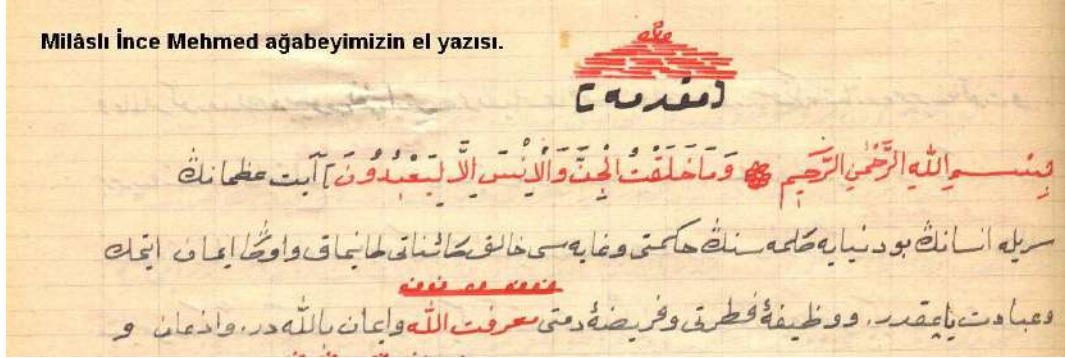 Milâslı İnce Mehmed ağabeyimizin el yazısı.
[مقدمه]
بِسْــــمِ اللهِ الرَّحْمٰنِ الرَّحِيمِ وَمَا خَلَقْتُ الْجِنَّ وَالْاِنْسَ اِلَّا لِيَعْبُدُونَ] آيت عظمانڭ
سريله انسانڭ بو دنيايه كلمه سنڭ حكمتى وغايه سى خالق كائناتى طانيماق واوڭا ايمان ايتمك
وعبادت ياپمقدر. ووظيفۀ فطرتى وفريضۀ ذمتى معرفت الله وايمان بالله در. واذعان و